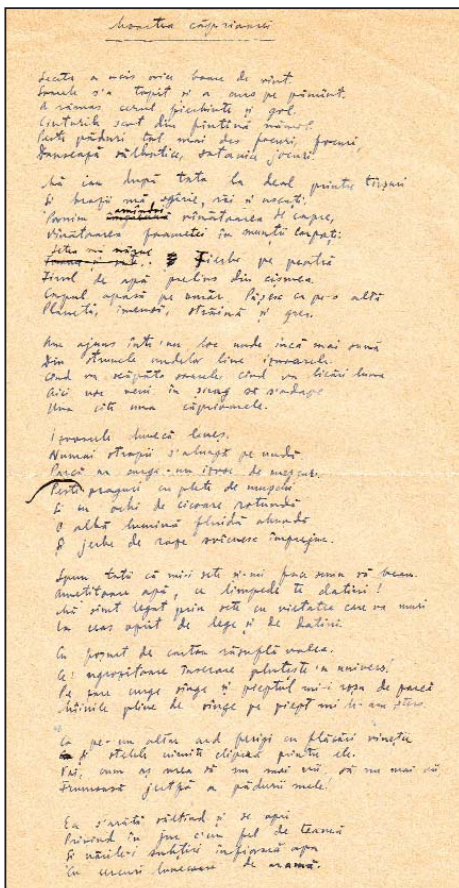 Moartea căprioarei
Seceta a ucis orice boare de vînt.
Soarele s'a topit și a curs pe pămînt.
A rămas cerul fierbinte și gol.
Ciuturile scot din fîntînă nămol.
Peste păduri tot mai des focuri, focuri,
Dansează sălbatice, satanice jocuri.
Mă iau după tata la deal printre tîrșuri
Și brazii mă zgîrie, răi și uscați.
Pornim amîndoi vînătoarea de capre,
Vînătoarea foametei în munții Carpați.
Setea mă nărue. Fierbe pe piatră
Firul de apă prelins din cișmea.
Tîmpla apasă pe umăr. Pășesc ca pe-o altă
Planetă, imensă, străină și grea.
Am ajuns într'un loc unde încă mai sună
Din strunele undelor line izvoarele.
Cînd va scăpăta soarele, cînd va licări luna
Aici vor veni în șirag să s'adape
Una cîte una căprioarele.
Izvoarele lunecă leneș.
Numai stropii s'alungă pe undă
Parcă ar curge-un izvor de
Peste praguri cu plete de mușchi
Și cu ochi de cicoare rotundă
O albă lumină fluidă abundă
Și jerbe de raze împrejur.
Spun tatii că mi-i sete și-mi face semn să beau.
Amețitoare apă, ce limpede te clatini!
Mă simt legat prin sete de vietatea care va muri
La ceas oprit de lege și de datini.
Cu foșnet de răsuflă valea.
Ce îngrozitoare înserare plutește'n univers!
Pe zare curge sînge și pieptul mi-i roșu de parcă
Mâinile pline de sînge pe piept mi le-am șters.
Ca pe-un altar ard ferigi cu flăcări vineții
Și stelele uimite clipeau printre ele.
Vai, cum aș vrea să nu mai vii, să nu mai vii,
Frumoasă jertfă a pădurii mele!
Ea s'arătă săltînd și se opri
Privind în jur c'un fel de teamă
Și nările-i subțiri înfiorară apa
Cu cercuri lunecoase de aramă.